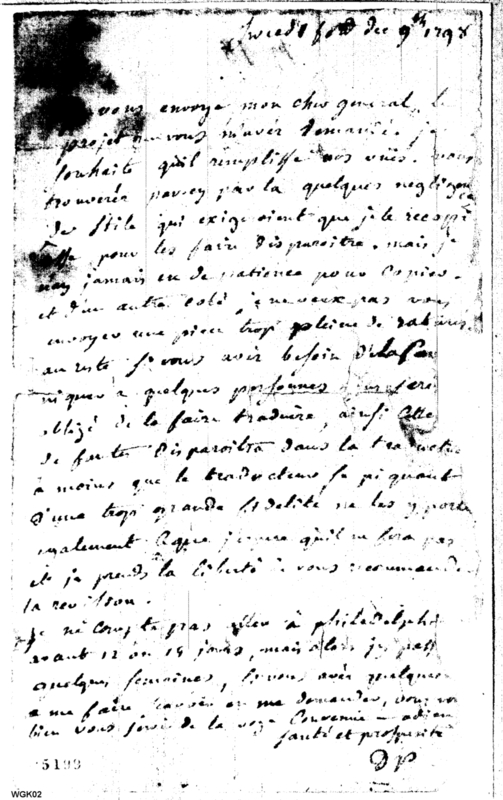 dec 9th 1798
vous envoye mon cher general, le
projet que vous m'avéz demandé. je
souhaite qu'il remplisse vos vuës. vous
trouverés par cy par la quelques negligen
de stile qui exigeoient que je le recopi
pour les faire disparoitre. mais je
n'ay jamais eu de patience pour copier.
et d'un autre coté, je ne veux pas vous
envoyer une piece trop pleine de ratures.
au reste si vous avés besoin de la com
niquer a quelques personnes
obligé de la faire traduire, ainsi
de fautes disparoitra dans la traducti
à moins que le traducteur se piquant
d'une trop grande fidelité ne les y porte
egalement ce que j'espere qu'il ne fera pas
et je prends la liberté de vous recommander
la revision.
je ne compte pas aller à philadelphi
avant 12 ou 15 jours, mais alors j'y pass
quelques semaines, si vous avés quelque
a me faire savoir ou me demander, vous
bien vous servir de la voye convenue - adieu
santé et prosperité
DP
5199
WGK02